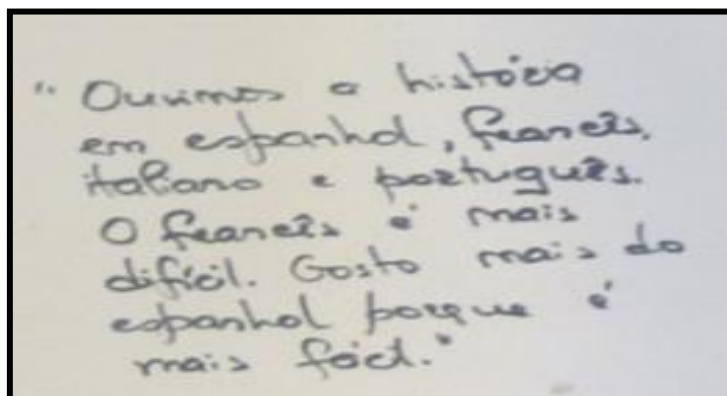 "Ouvimos a história
em espanhol, francês,
italiano e português.
O francês é mais
difícil. Gosto mais do
espanhol porque é
mais fácil."